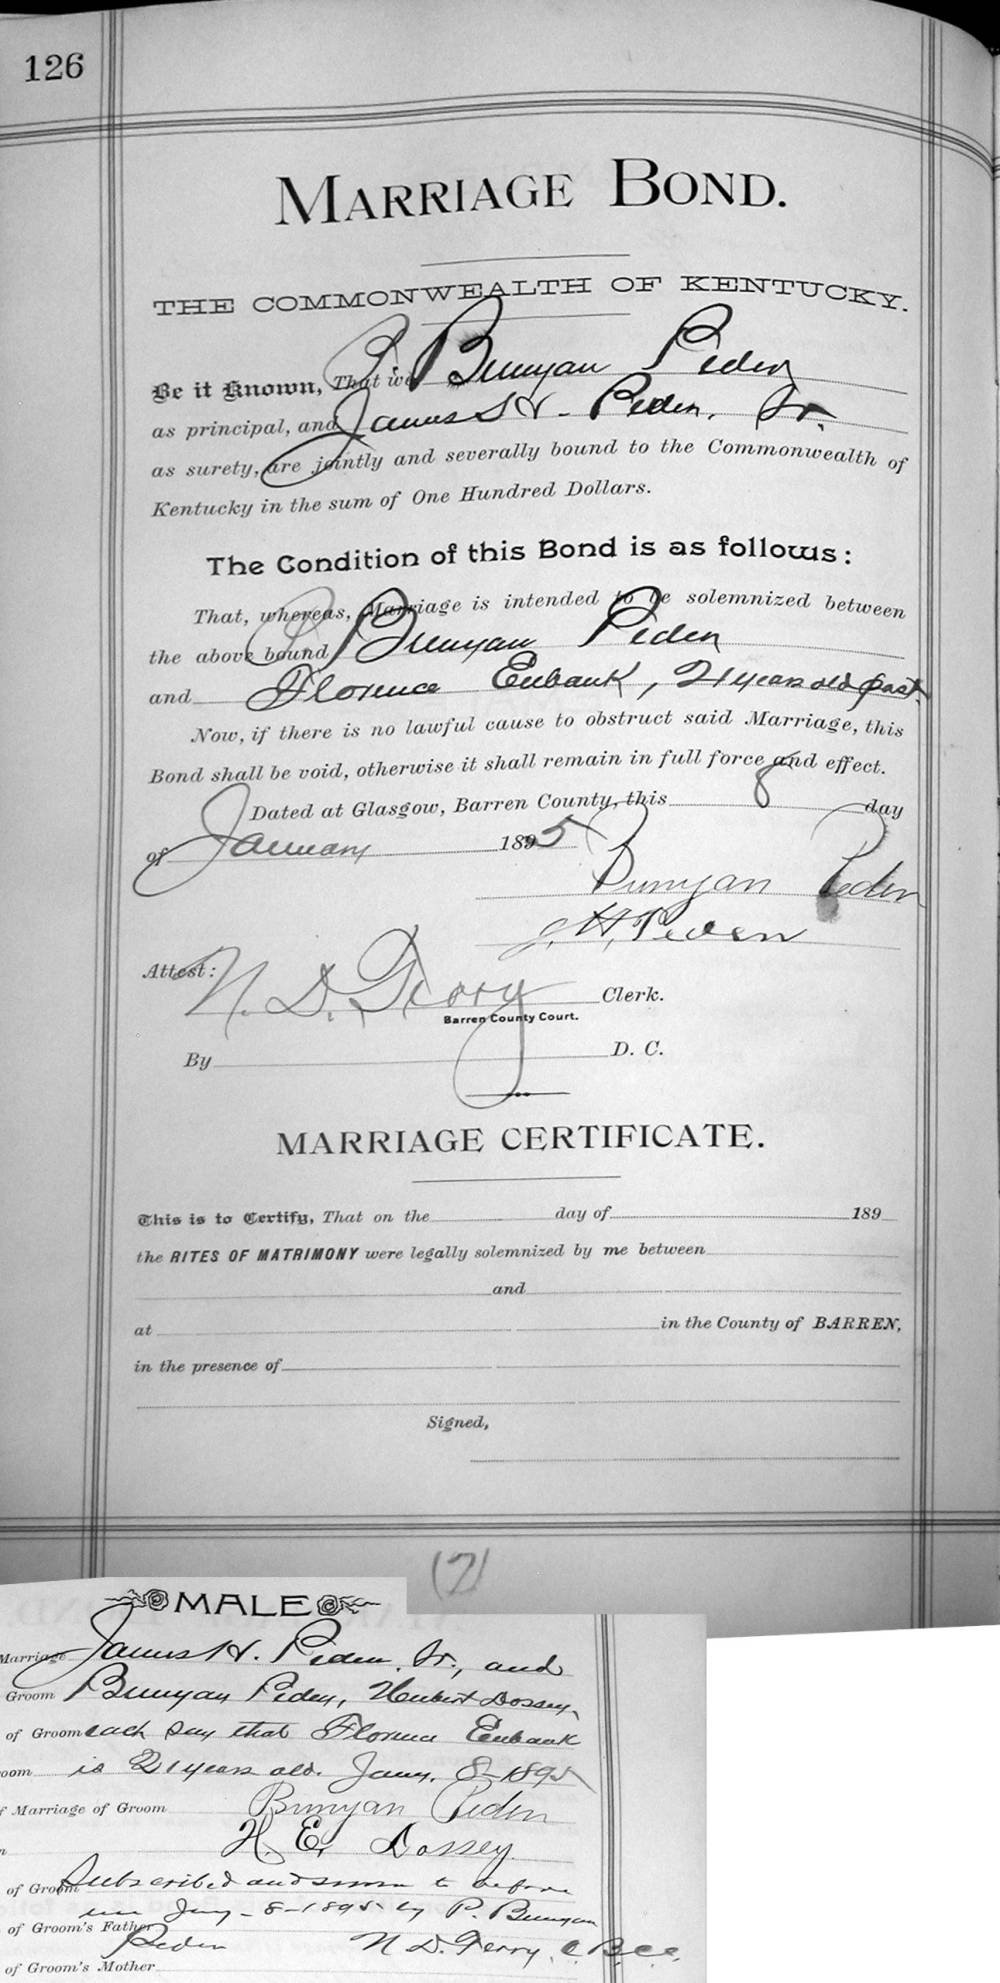 126
MARRIAGE BOND.
THE COMMONWEALTH OF KENTUCKY.
Be it Known, That we P. Bunyan Peden
as principal, and James H. Peden, Sr.
as surety, are jointly and severally bound to the Commonwealth of
Kentucky in the sum of One Hundred Dollars.
The Condition of this Bond is as follows:
That, whereas, Marriage is intended to be solemnized between
the above bound P. Bunyan Peden
and Florence Eubank, 21 years old past
Now, if there is no lawful cause to obstruct said Marriage, this
Bond shall be void, otherwise it shall remain in full force and effect.
Dated at Glasgow, Barren County, this 8 day
of January 1895
Bunyan Peden
J. H. Peden
Attest: N. D. Terry Clerk.
Barren County Court.
By D. C.
MARRIAGE CERTIFICATE.
This is to Certify, That on the day of 189
the RITES OF MATRIMONY were legally solemnized by me between
and
at in the County of BARREN,
in the presence of
Signed,
(7)
MALE
Marriage James H. Peden, Sr., and
Groom Bunyan Peden, Hubert Dossey,
of Groom each say that Florence Eubank
oom is 21 years old. Jany. 8-1895
f Marriage of Groom Bunyan Peden
n H. E. Dossey
of Groom Subscribed and sworn to before
me Jany-8-1895 by P. Bunyan
of Groom's Father Peden N. D. Terry, C.B.C.C.
of Groom's Mother